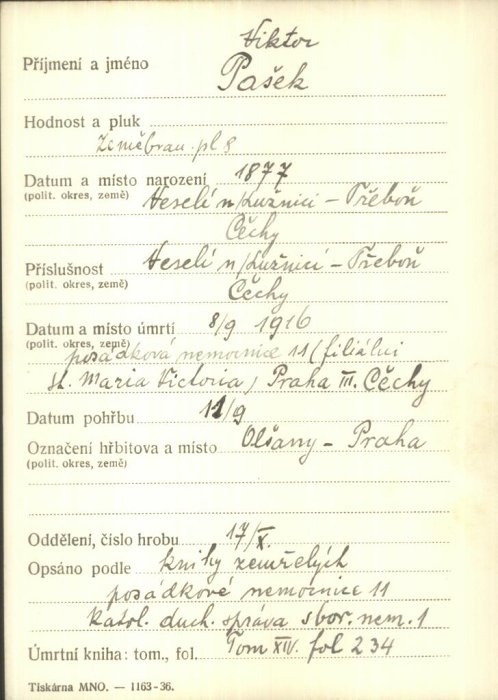 Viktor
Příjmení a jméno Pašek
Hodnost a pluk
Zeměbran. pl 8
Datum a místo narození 1877
(polit. okres, země) Veselí n/Lužnici – Třeboň
Čechy
Příslušnost Veselí n/Lužnici – Třeboň
(polit. okres, země) Čechy
Datum a místo úmrtí 8/9 1916
(polit. okres, země)
posádková nemocnice 11 (filiální
st. Maria Victoria) Praha III. Čechy
Datum pohřbu 11/9
Označení hřbitova a místo Olšany – Praha
(polit. okres, země)
Oddělení, číslo hrobu 17/X.
Opsáno podle knihy zemřelých
posádkové nemocnice 11
katol. duch. správa sbor. nem. 1
Úmrtní kniha: tom., fol. Tom XIV. fol 234
Tiskárna MNO. — 1163-36.